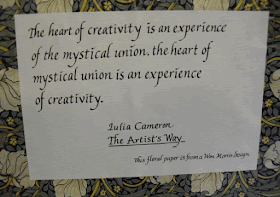 The heart of creativity is an experience
of the mystical union, the heart of
mystical union is an experience
of creativity.
Iulia Cameron
The Artist's Way
This floral paper is from a Wm Morris design